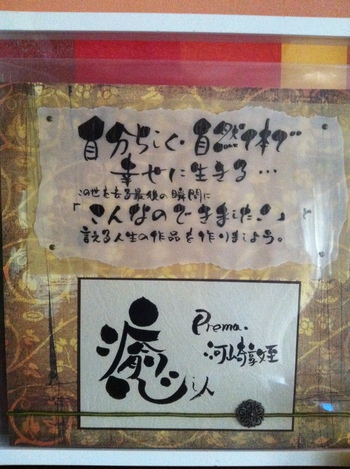 自分らしく自然体で
幸せに生きる…
この世を去る最後の瞬間に
「こんなのできました!」と
言える人生の作品を作りましょう。
Prema.
河崎
癒し人